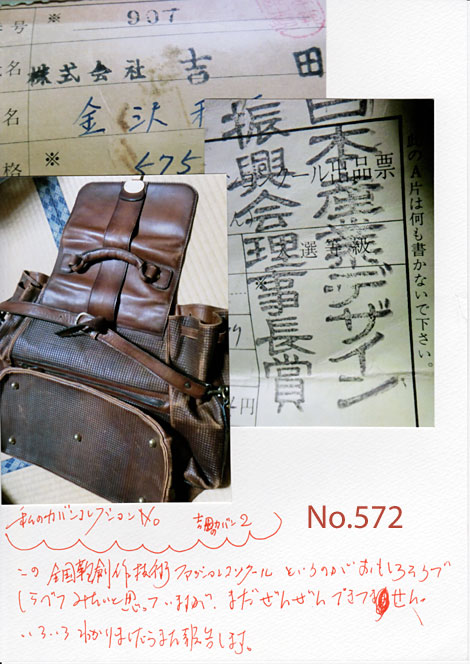 号 ※ 907
名 株式会社 吉田
名 金沢
格 ※ 575
ンクール出品票
このA片は何も書かないで下さい。
日本産業デザイン
振興会理事長賞
入選等級
※
円
私のカバンコレクションNo.
吉田カバンの2
No.572
この 全国鞄創作技術ファッションコンクール というのがおもしろそうで
しらべてみたいと思っていますが、まだぜんぜんできてません。
いろいろわかりましたらまた報告します。